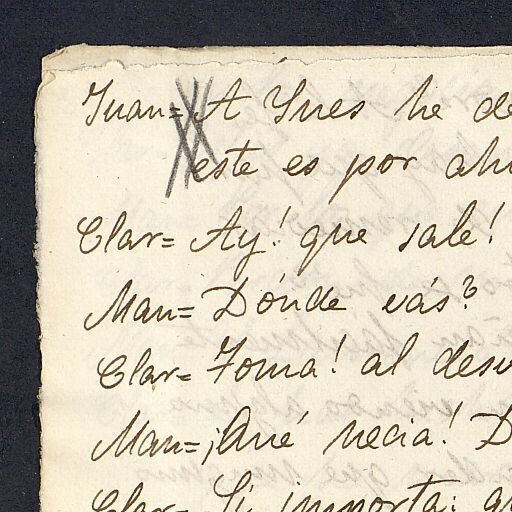 Juan= A Ynes he de
este es por aho
Clar= Ay! que sale!
Man= Dónde vás?
Clar= Toma! al desv
Man= ¡Qué necia! D
Clar= Si importa: qu